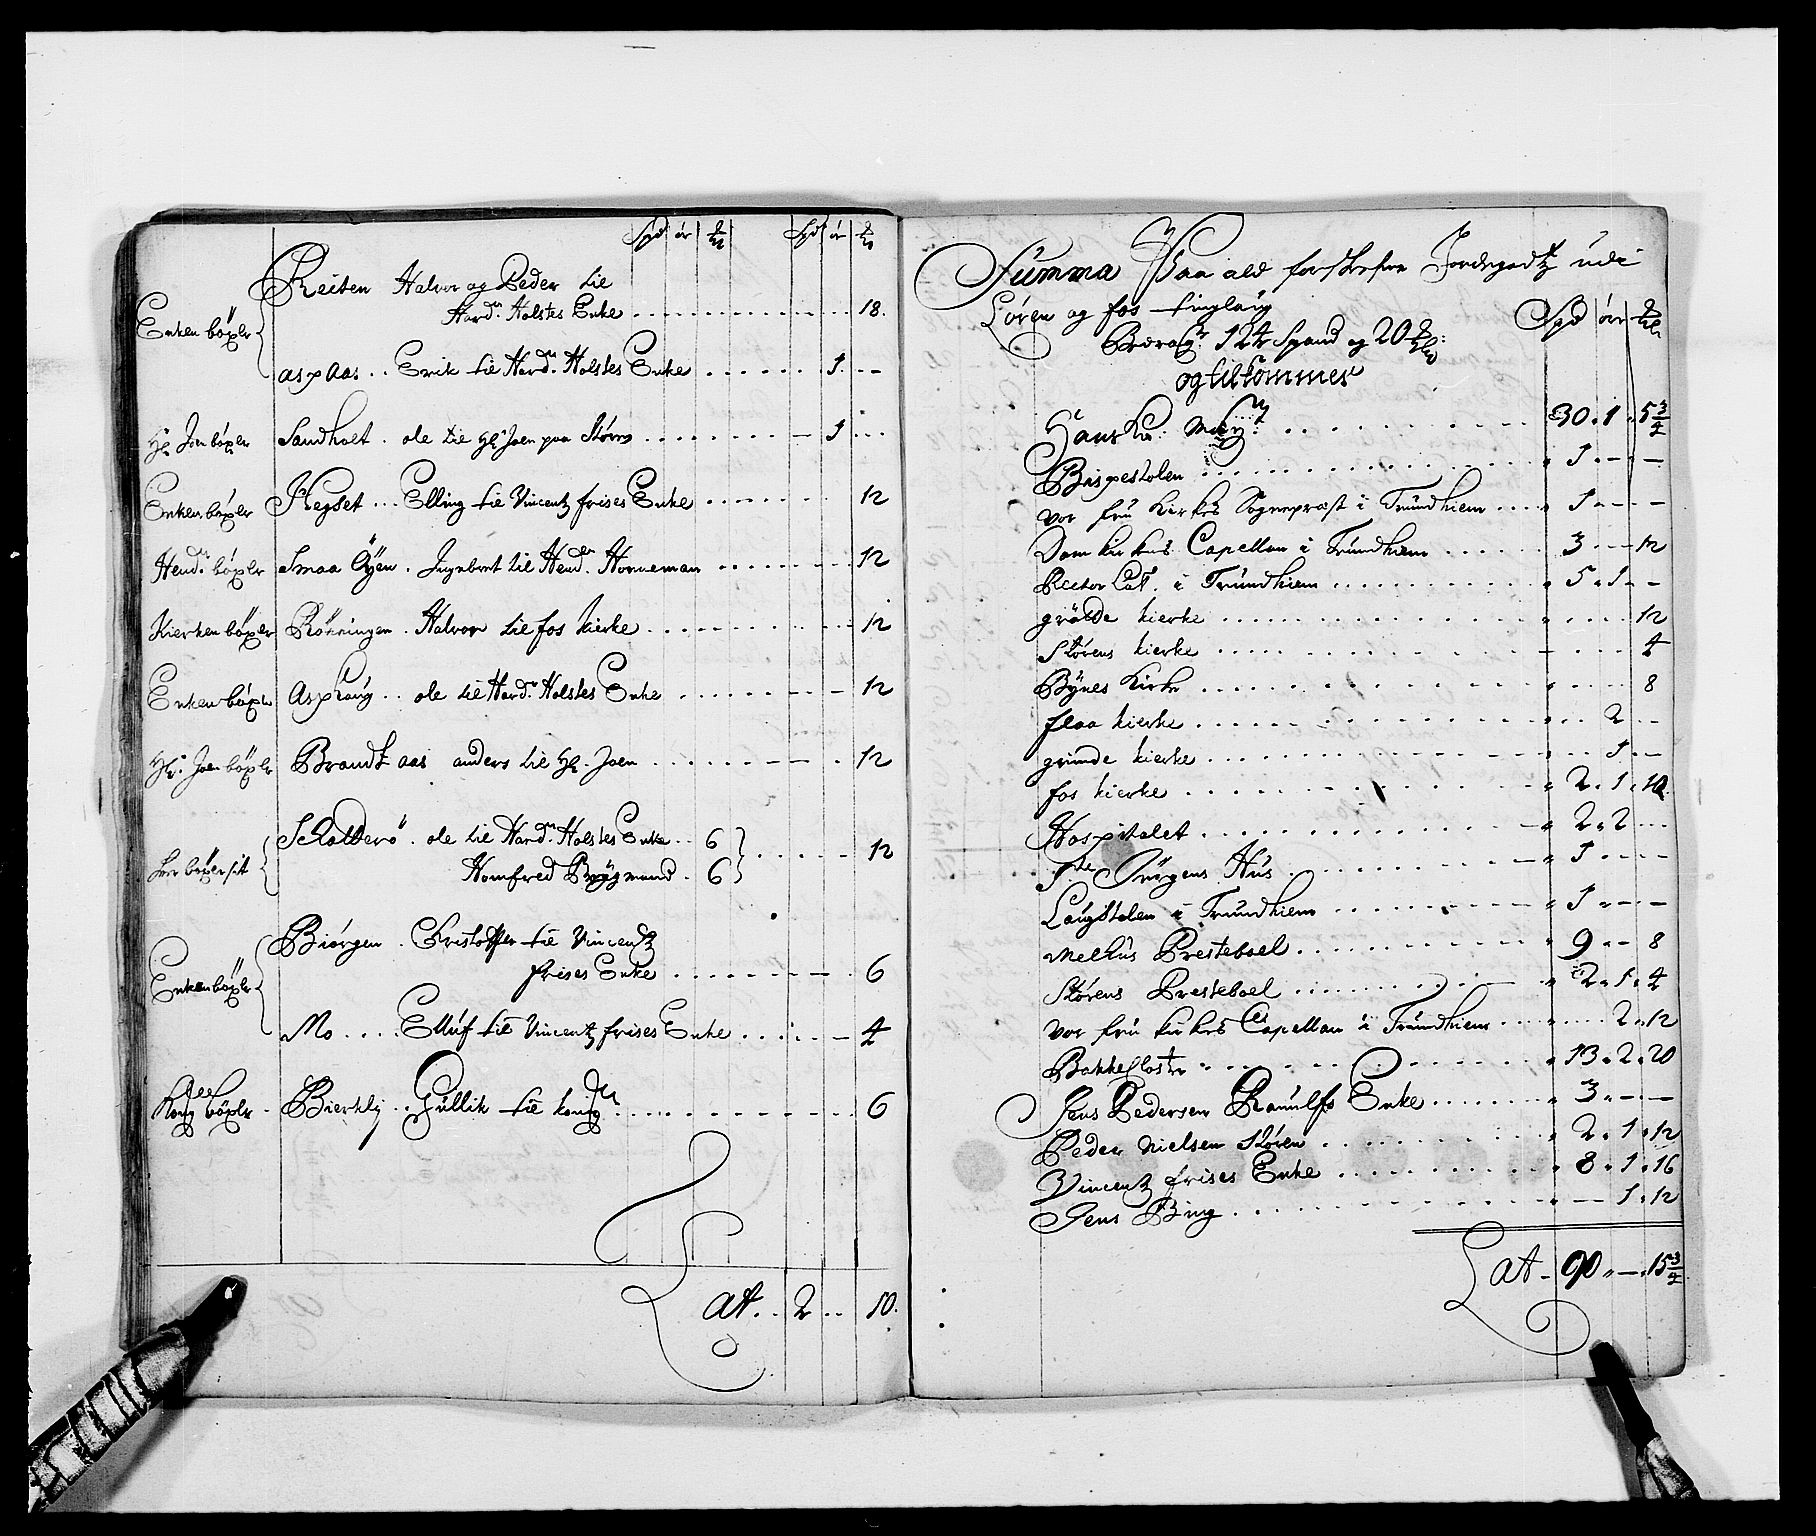 Spd ør mkl Spd ør mkl
Reiten Halvor og Peder til
Enken böxler Hard: Holstes Enke 18.
aspaas .. Erik til Hard: Holstes Enke 1 --
Hr: Joen böxler Sandholt . ole til Hr: Joen paa Støren 1
Enken böxler Hegset ... Elling til Vincentz frises Enke 12
Hend: böxler Smaa Öyen . Ingebret til Hend: Horneman 12
Kierken böxler Rönningen . Halvor til fos kierke 12
Enken böxler Asphaug .. ole til Hard: Holstes Enke 12
Hr: Joen böxler Brandtz aas anders til Hr: Joen 12
Skolderö . ole til Hard: Holstes Enke .. 6
böxler sit 12
Homfred Brygmand . 6
Biörgen . Christoffer til Vincentz
Enken böxler frises Enke 6
Mo .... Elluf til Vincentz frises Enke 4
böxler Bierkly .. Gullik til 6
Lat .. 2 .. 10.
Summa Paa ald forskrefne Jordegodtz udi
Støren og fos tinglaug
Spd ører mkl
Beregnt 124 Spand og 20 mkl:
og tilkommer
Hans Kö: May:tt 30 . 1 . 5 3/4
Bispestolen 1 . - . -
vor frü kirkes Sognepræst i Trundhiem 1 - -
Dom kirkens Capellan i Trundhiem 3 - 12
Rector Cat: i Trundhiem 5 . 1 . -
grötte kierke 12
Störens kierke 4
Bynes Kirke 8
flaa kierke 2 -
grinde kierke 1 . -
fos kierke 2 . 1 . 10
Hospitalet 2 . 2
Ste Jürgens Hüs 1 . - -
Laugstolen i Trundhiem 1 . - -
Melhüs Presteboel 9 - 8
Störens Presteboel 2 . 1 . 4
vor frü kirkes Capellan i Trundhiem 2 . 12
Bakke Closter 13 . 2 . 20
Jens Pedersen Randulfs Enke 3 . - -
Peder Nielsen Stören 2 . 1 . 12
Vincentz frises Enke 8 . 1 . 16
Jens Bing 1 . 12
Lat - 90 . - . 15 3/4